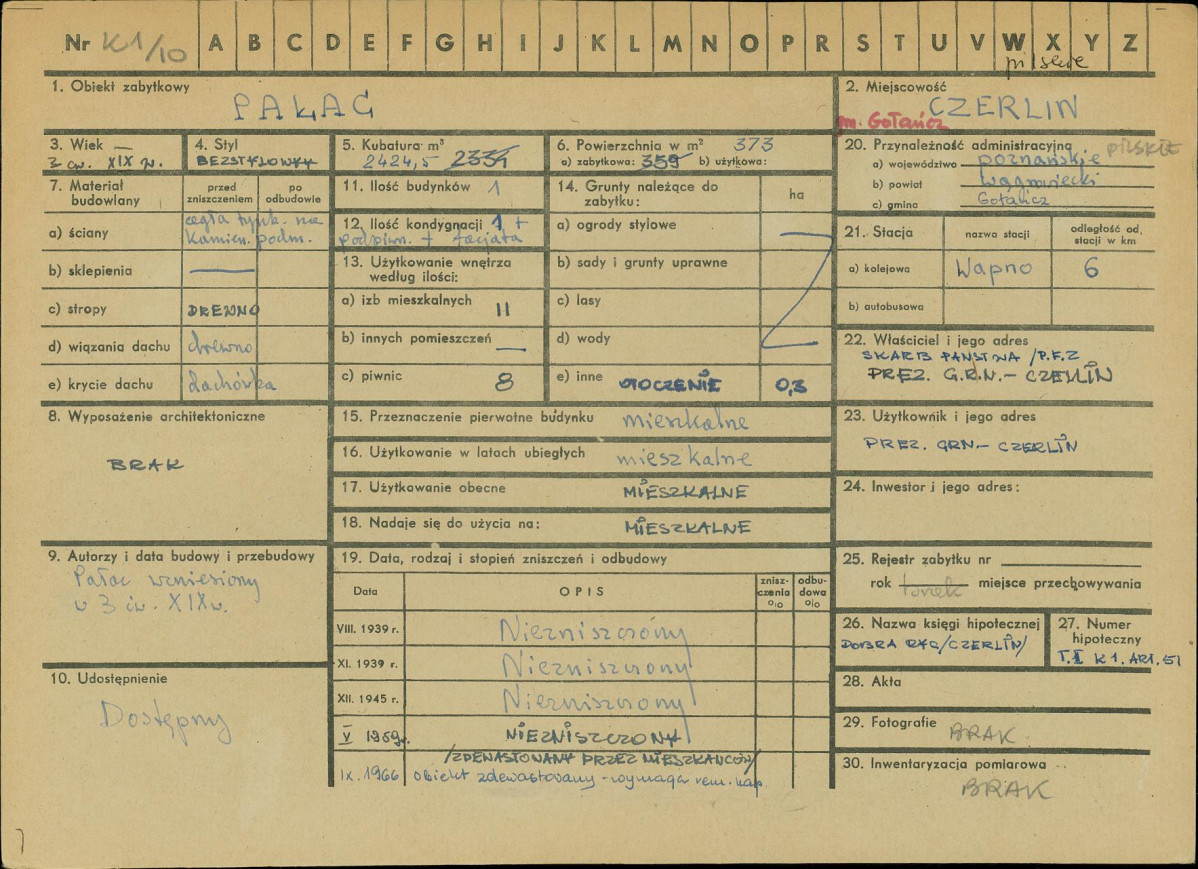 Nr K1/10 A B C D E F G H I J K L M N O P R S T U V W X Y Z
pilskie
1. Obiekt zabytkowy
PAŁAC
2. Miejscowość
CZERLIN
gm. Gołańcz
3. Wiek —
3 ćw. XIX w.
4. Styl
BEZSTYLOWY
5. Kubatura m³
2424,5 2334
6. Powierzchnia w m² 373
a) zabytkowa: 359 b) użytkowa:
7. Materiał budowlany
przed zniszczeniem
po odbudowie
a) ściany
cegła tynk. na
kamien. podm.
b) sklepienia —
c) stropy DREWNO
d) wiązania dachu drewno
e) krycie dachu dachówka
8. Wyposażenie architektoniczne
BRAK
9. Autorzy i data budowy i przebudowy
Pałac wzniesiony
w 3 ćw. XIX w.
10. Udostępnienie
Dostępny
11. Ilość budynków 1
12. Ilość kondygnacji 1 +
podpiwn. + facjata
13. Użytkowanie wnętrza
według ilości:
a) izb mieszkalnych 11
b) innych pomieszczeń —
c) piwnic 8
14. Grunty należące do
zabytku:
ha
a) ogrody stylowe
b) sady i grunty uprawne
c) lasy
d) wody
e) inne OTOCZENIE 0,3
15. Przeznaczenie pierwotne budynku mieszkalne
16. Użytkowanie w latach ubiegłych mieszkalne
17. Użytkowanie obecne MIESZKALNE
18. Nadaje się do użycia na: MIESZKALNE
19. Data, rodzaj i stopień zniszczeń i odbudowy
Data
OPIS
znisz-
czenia
o/o
odbu-
dowa
o/o
VIII. 1939 r. Niezniszczony
XI. 1939 r. Niezniszczony
XII. 1945 r. Niezniszczony
V 1959r. NIEZNISZCZONY
/ZDEWASTOWANY PRZEZ MIESZKAŃCÓW/
IX. 1966 obiekt zdewastowany - wymaga rem. kap.
20. Przynależność administracyjna PILSKIE
a) województwo poznańskie
b) powiat wągrowiecki
c) gmina Gołańcz
21. Stacja
nazwa stacji
odległość od
stacji w km
a) kolejowa Wapno 6
b) autobusowa
22. Właściciel i jego adres
SKARB PAŃSTWA /P.F.Z
PREZ. G.R.N.- CZERLIN
23. Użytkownik i jego adres
PREZ. GRN.- CZERLIN
24. Inwestor i jego adres:
25. Rejestr zabytku nr
rok miejsce przechowywania
26. Nazwa księgi hipotecznej
DOBRA RYC/CZERLIN/
27. Numer
hipoteczny
T.I K 1. ART. 51
28. Akta
29. Fotografie
BRAK
30. Inwentaryzacja pomiarowa
BRAK